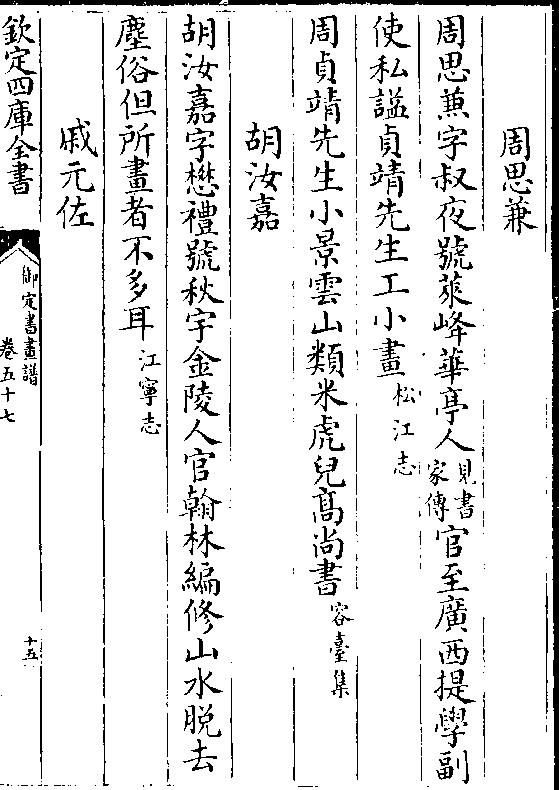 周思兼
周思蒹字叔夜號萊峰華亭人見書家傳官至廣西提學副
使私謚貞靖先生工小畫松江志
周貞靖先生小景雲山類米虎兒髙尚書容臺集
胡汝嘉
胡汝嘉字懋禮號秋宇金陵人官翰林編修山水脱去
塵俗但所畫者不多耳江寧志
戚元佐
欽定四庫全書
御定書畫譜
卷五十七
十五